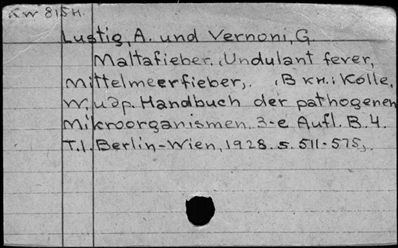 KW 815H.
Lustig, A. und Vernoni, G.
Maltafieber. (Undulant fever,
Mittelmeerfieber). (В кн.: Kolle,
W. идр. Handbuch der pathogenen
Mikroorganismen. 3-e Aufl. B. 4.
T. 1. Berlin-Wien, 1928. s. 511-575).